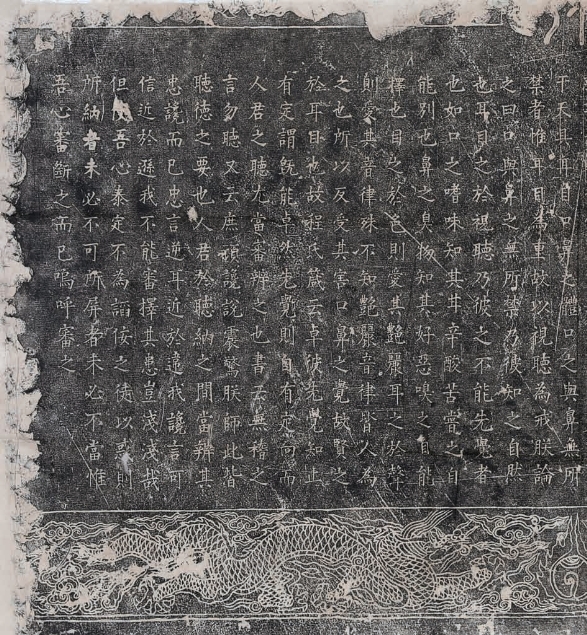 于天其耳目鼻之體口之與鼻無所
禁者惟耳目為重故以視聽為戒朕論
之曰口與鼻之無所禁乃彼知之自然
也耳目之於視聽乃彼之不能先覺者
也如口之嗜味知其甘辛酸苦嘗之自
能別也鼻之臭物知其好惡嗅之自能
擇也目之於色則愛其艷麗耳之於聲
則愛其音律殊不知艷麗音律皆人為
之也所以反受其害口鼻之覺故賢之
於耳目也故程氏箴云卓彼先覺知止
有定謂既能卓然先覺則自有定向而
人君之聽尤當審辨之也書云無稽之
言勿聽又云庶頑讒說震驚朕師此皆
聽德之要也人君於聽納之間當辨其
忠讒而已忠言逆耳近於違我讒言可
信近於遜我不能審擇其患豈淺淺哉
但使吾心泰定不為諂佞之徒以惑則
所納者未必不可所屏者未必不當惟
吾心審斷之而已嗚呼審之